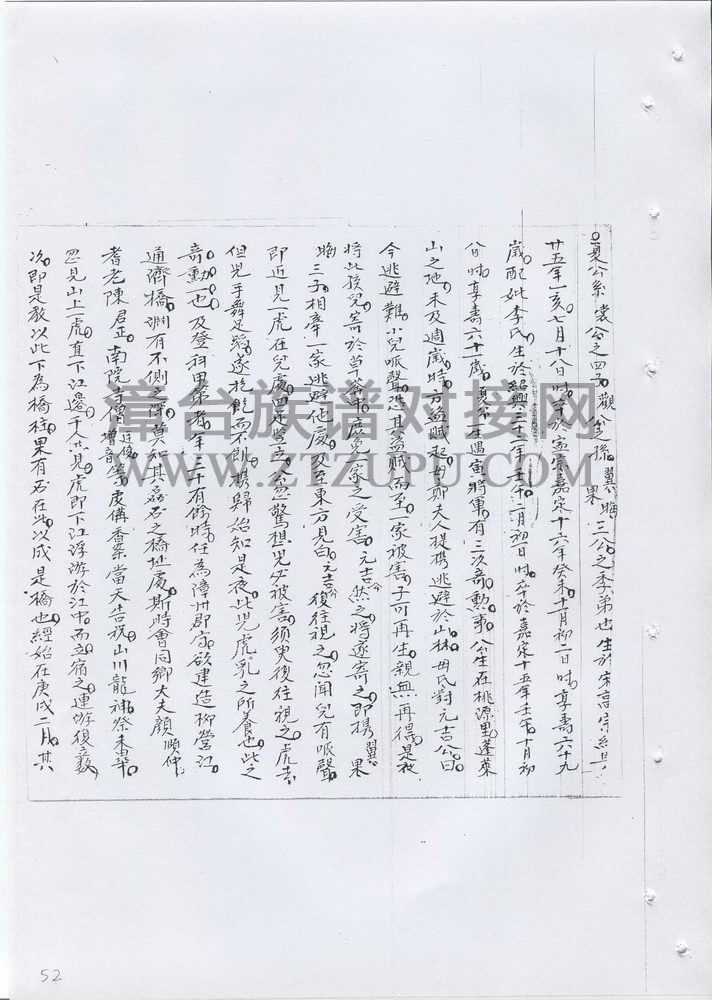 夏公系棠公之四子觀公之孫翼晦果三公之季弟也生於宋高宗紹興
廿五年乙亥七月十八日時卒於寧宗嘉定十六年癸未十一月初二日時享壽六十九
歲配妣李氏生於紹興三十二年壬午二月初一日時卒於嘉定十五年壬午十月初
八日時享壽六十一歲夏公在遇寅將軍有三次奇勲事公生在桃源里蓬萊
山之地未及週歲時方盜賊起母鄭夫人提携逃避於山林毋氏對元吉公曰
今逃避難小兒哌聲恐其盜賊而至一家被害子可再生親無再得是夜
將此孩兒寄於草 庶免家之受害元吉公然之將遂寄之即携翼果
晦三子相牽一家逃避他處及至東方見白元吉公復往視之忽聞兒有哌聲
即近見一虎在兒處四足竪立公忽驚想兒必被害須臾復往視之虎去
但兒手舞足蹈遂抱飽而不飢携歸始知是夜此兒虎乳之所養也此之
奇勳一也及登科甲第者年三十有餘時任為漳州郡守欲建造柳營江
通濟橋淵有不側之深莫知其磊石之橋址處斯時會同鄉大夫顏順仲
耆老陳君正南院寺僧廷俊增龍等虔俻香案當天告祝山川龍神祭未畢
忽見山上一虎直下江邊千人共見虎即下江浮游於江中而立宿之連游復數
次即是教以此下為橋柱果有石在此以成是橋也經始在庚戌二月其
漳台族谱对接网
WWW.ZTZUPU.COM
52